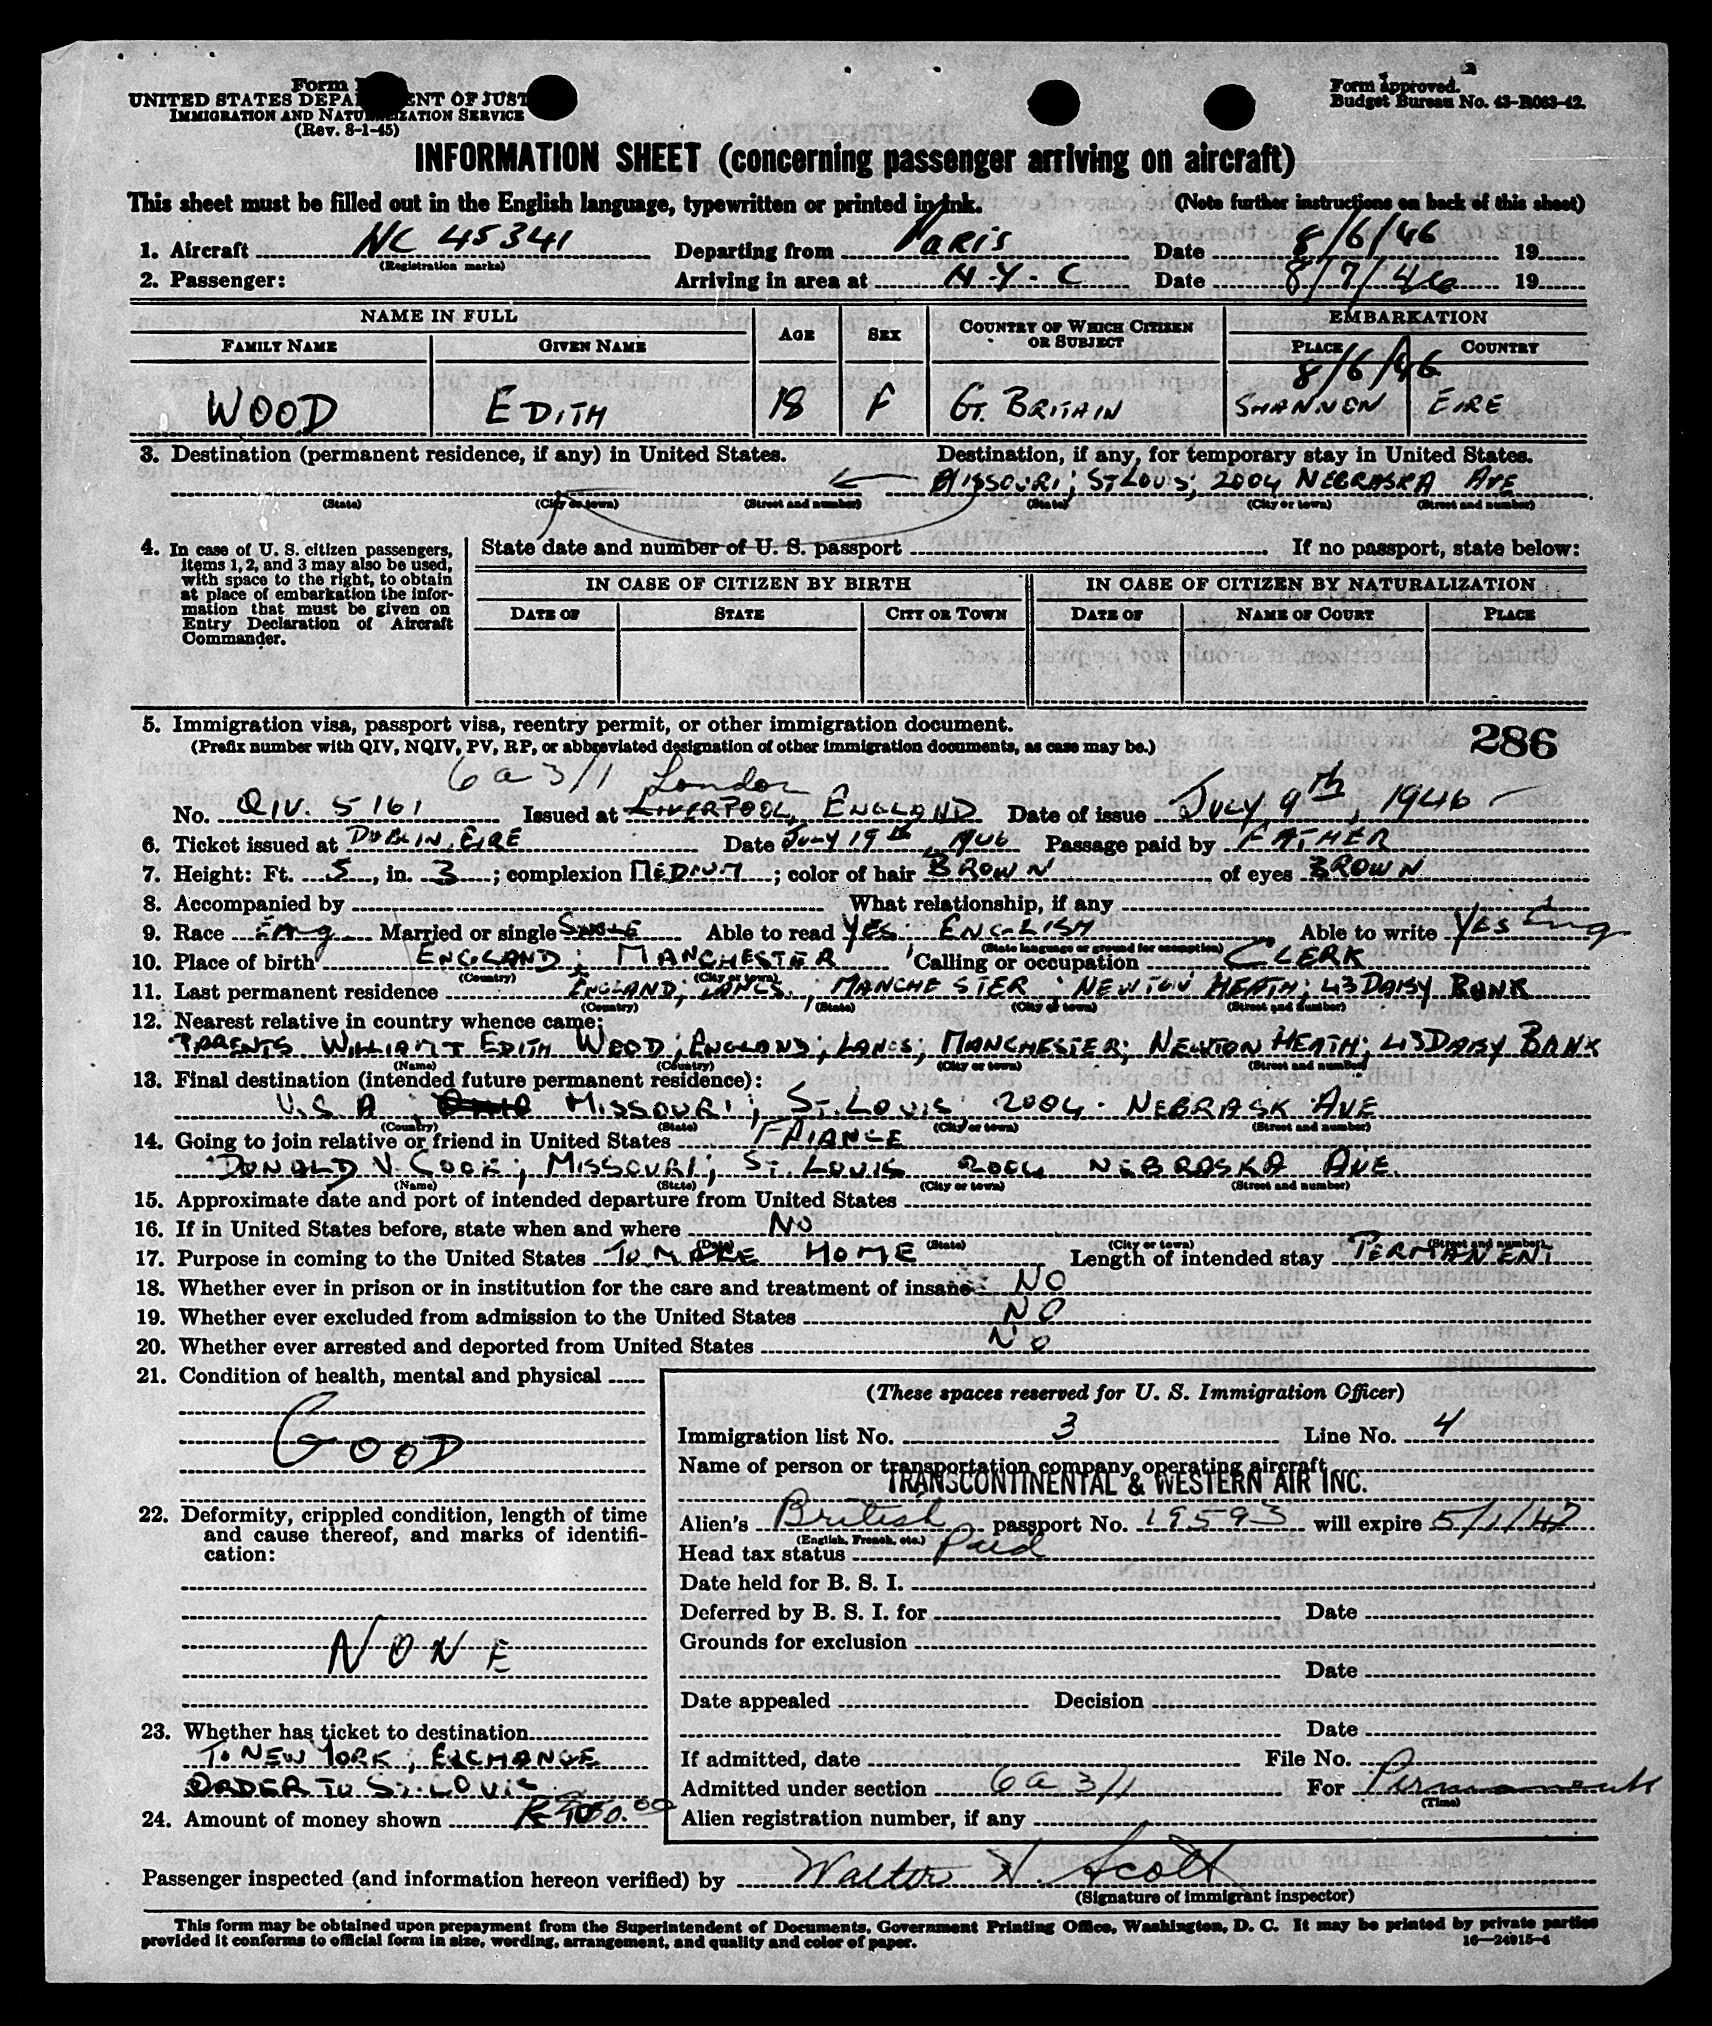 Form
UNITED STATES DEPA ENT OF JUST
IMMIGRATION AND NATURALIZATION SERVICE
(Rev. 8-1-45)
Form approved.
Budget Bureau No. 43-R063-42.
INFORMATION SHEET (concerning passenger arriving on aircraft)
This sheet must be filled out in the English language, typewritten or printed in ink. (Note further instructions on back of this sheet)
1. Aircraft NC 45341 Departing from PARIS Date 8/6/46 19
(Registration marks)
2. Passenger: Arriving in area at N.Y.C Date 8/7/46 19
NAME IN FULL AGE SEX COUNTRY OF WHICH CITIZEN OR SUBJECT EMBARKATION
FAMILY NAME GIVEN NAME PLACE COUNTRY
8/6/46
WOOD EDITH 18 F GT. BRITAIN SHANNON EIRE
3. Destination (permanent residence, if any) in United States. Destination, if any, for temporary stay in United States.
MISSOURI; ST LOUIS; 2004 NEBRASKA AVE
(State) (City or town) (Street and number) (State) (City or town) (Street and number)
4. In case of U. S. citizen passengers, items 1, 2, and 3 may also be used, with space to the right, to obtain at place of embarkation the information that must be given on Entry Declaration of Aircraft Commander.
State date and number of U. S. passport If no passport, state below:
IN CASE OF CITIZEN BY BIRTH IN CASE OF CITIZEN BY NATURALIZATION
DATE OF STATE CITY OR TOWN DATE OF NAME OF COURT PLACE
5. Immigration visa, passport visa, reentry permit, or other immigration document.
(Prefix number with QIV, NQIV, PV, RP, or abbreviated designation of other immigration documents, as case may be.)
286
6 a 3/1 London
No. QIV. 5161 Issued at LIVERPOOL, ENGLAND Date of issue JULY 9th, 1946
6. Ticket issued at DUBLIN, EIRE Date JULY 19th, 1946 Passage paid by FATHER
7. Height: Ft. 5, in. 3; complexion MEDIUM; color of hair BROWN of eyes BROWN
8. Accompanied by What relationship, if any
9. Race Eng Married or single SINGLE Able to read YES: ENGLISH Able to write YES Eng
(State language or ground for exemption)
10. Place of birth ENGLAND; MANCHESTER Calling or occupation CLERK
(Country) (City or town)
11. Last permanent residence ENGLAND; LANCS.; MANCHESTER; NEWTON HEATH; 43 DAISY BANK
(Country) (State) (City or town) (Street and number)
12. Nearest relative in country whence came:
PARENTS WILLIAM & EDITH WOOD; ENGLAND; LANCS; MANCHESTER; NEWTON HEATH; 43 DAISY BANK
(Name) (Country) (City or town) (Street and number)
13. Final destination (intended future permanent residence):
U.S.A; MISSOURI; ST. LOUIS; 2004 NEBRASK AVE
(Country) (State) (City or town) (Street and number)
14. Going to join relative or friend in United States FAIANCE
DONALD V. COOK; MISSOURI; ST. LOUIS 2004 NEBRASKA AVE.
(Name) (State) (City or town) (Street and number)
15. Approximate date and port of intended departure from United States
16. If in United States before, state when and where NO
(Date) (State) (City or town) (Street and number)
17. Purpose in coming to the United States TO MAKE HOME Length of intended stay PERMANENT
18. Whether ever in prison or in institution for the care and treatment of insane NO
19. Whether ever excluded from admission to the United States NO
20. Whether ever arrested and deported from United States NO
21. Condition of health, mental and physical
GOOD
22. Deformity, crippled condition, length of time and cause thereof, and marks of identification:
NONE
23. Whether has ticket to destination
TO NEW YORK; EXCHANGE
ORDER TO ST. LOUIS
24. Amount of money shown
(These spaces reserved for U. S. Immigration Officer)
Immigration list No. 3 Line No. 4
Name of person or transportation company operating aircraft
TRANSCONTINENTAL & WESTERN AIR INC.
Alien's British passport No. 19593 will expire 5/1/47
(English, French, etc.)
Head tax status Paid
Date held for B. S. I.
Deferred by B. S. I. for Date
Grounds for exclusion
Date
Date appealed Decision
Date
If admitted, date File No.
Admitted under section 6 a 3/1 For Permanent
(Time)
Alien registration number, if any
Passenger inspected (and information hereon verified) by Walter H. Scott
(Signature of immigrant inspector)
This form may be obtained upon prepayment from the Superintendent of Documents, Government Printing Office, Washington, D. C. It may be printed by private parties
provided it conforms to official form in size, wording, arrangement, and quality and color of paper. 16—24915-4